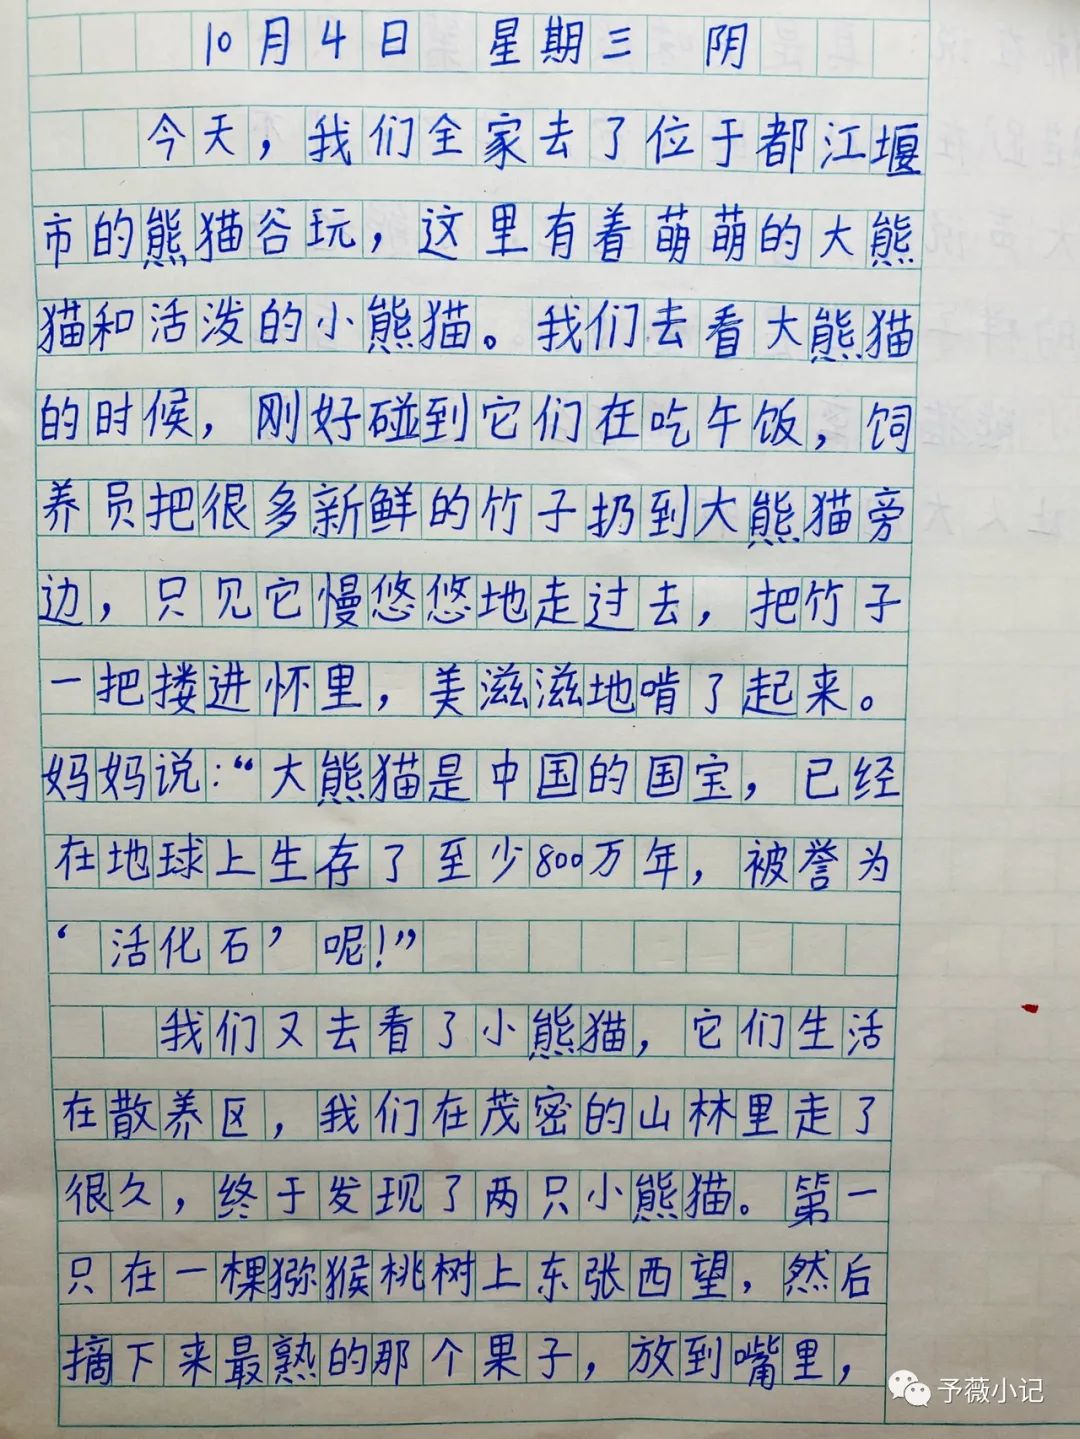 10月4日 星期三 阴
今天，我们全家去了位于都江堰
市的熊猫谷玩，这里有着萌萌的大熊
猫和活泼的小熊猫。我们去看大熊猫
的时候，刚好碰到它们在吃午饭，饲
养员把很多新鲜的竹子扔到大熊猫旁
边，只见它慢悠悠地走过去，把竹子
一把搂进怀里，美滋滋地啃了起来。
妈妈说：“大熊猫是中国的国宝，已经
在地球上生存了至少800万年，被誉为
‘活化石’呢！”
我们又去看了小熊猫，它们生活
在散养区，我们在茂密的山林里走了
很久，终于发现了两只小熊猫。第一
只在一棵猕猴桃树上东张西望，然后
摘下来最熟的那个果子，放到嘴里，
予薇小记